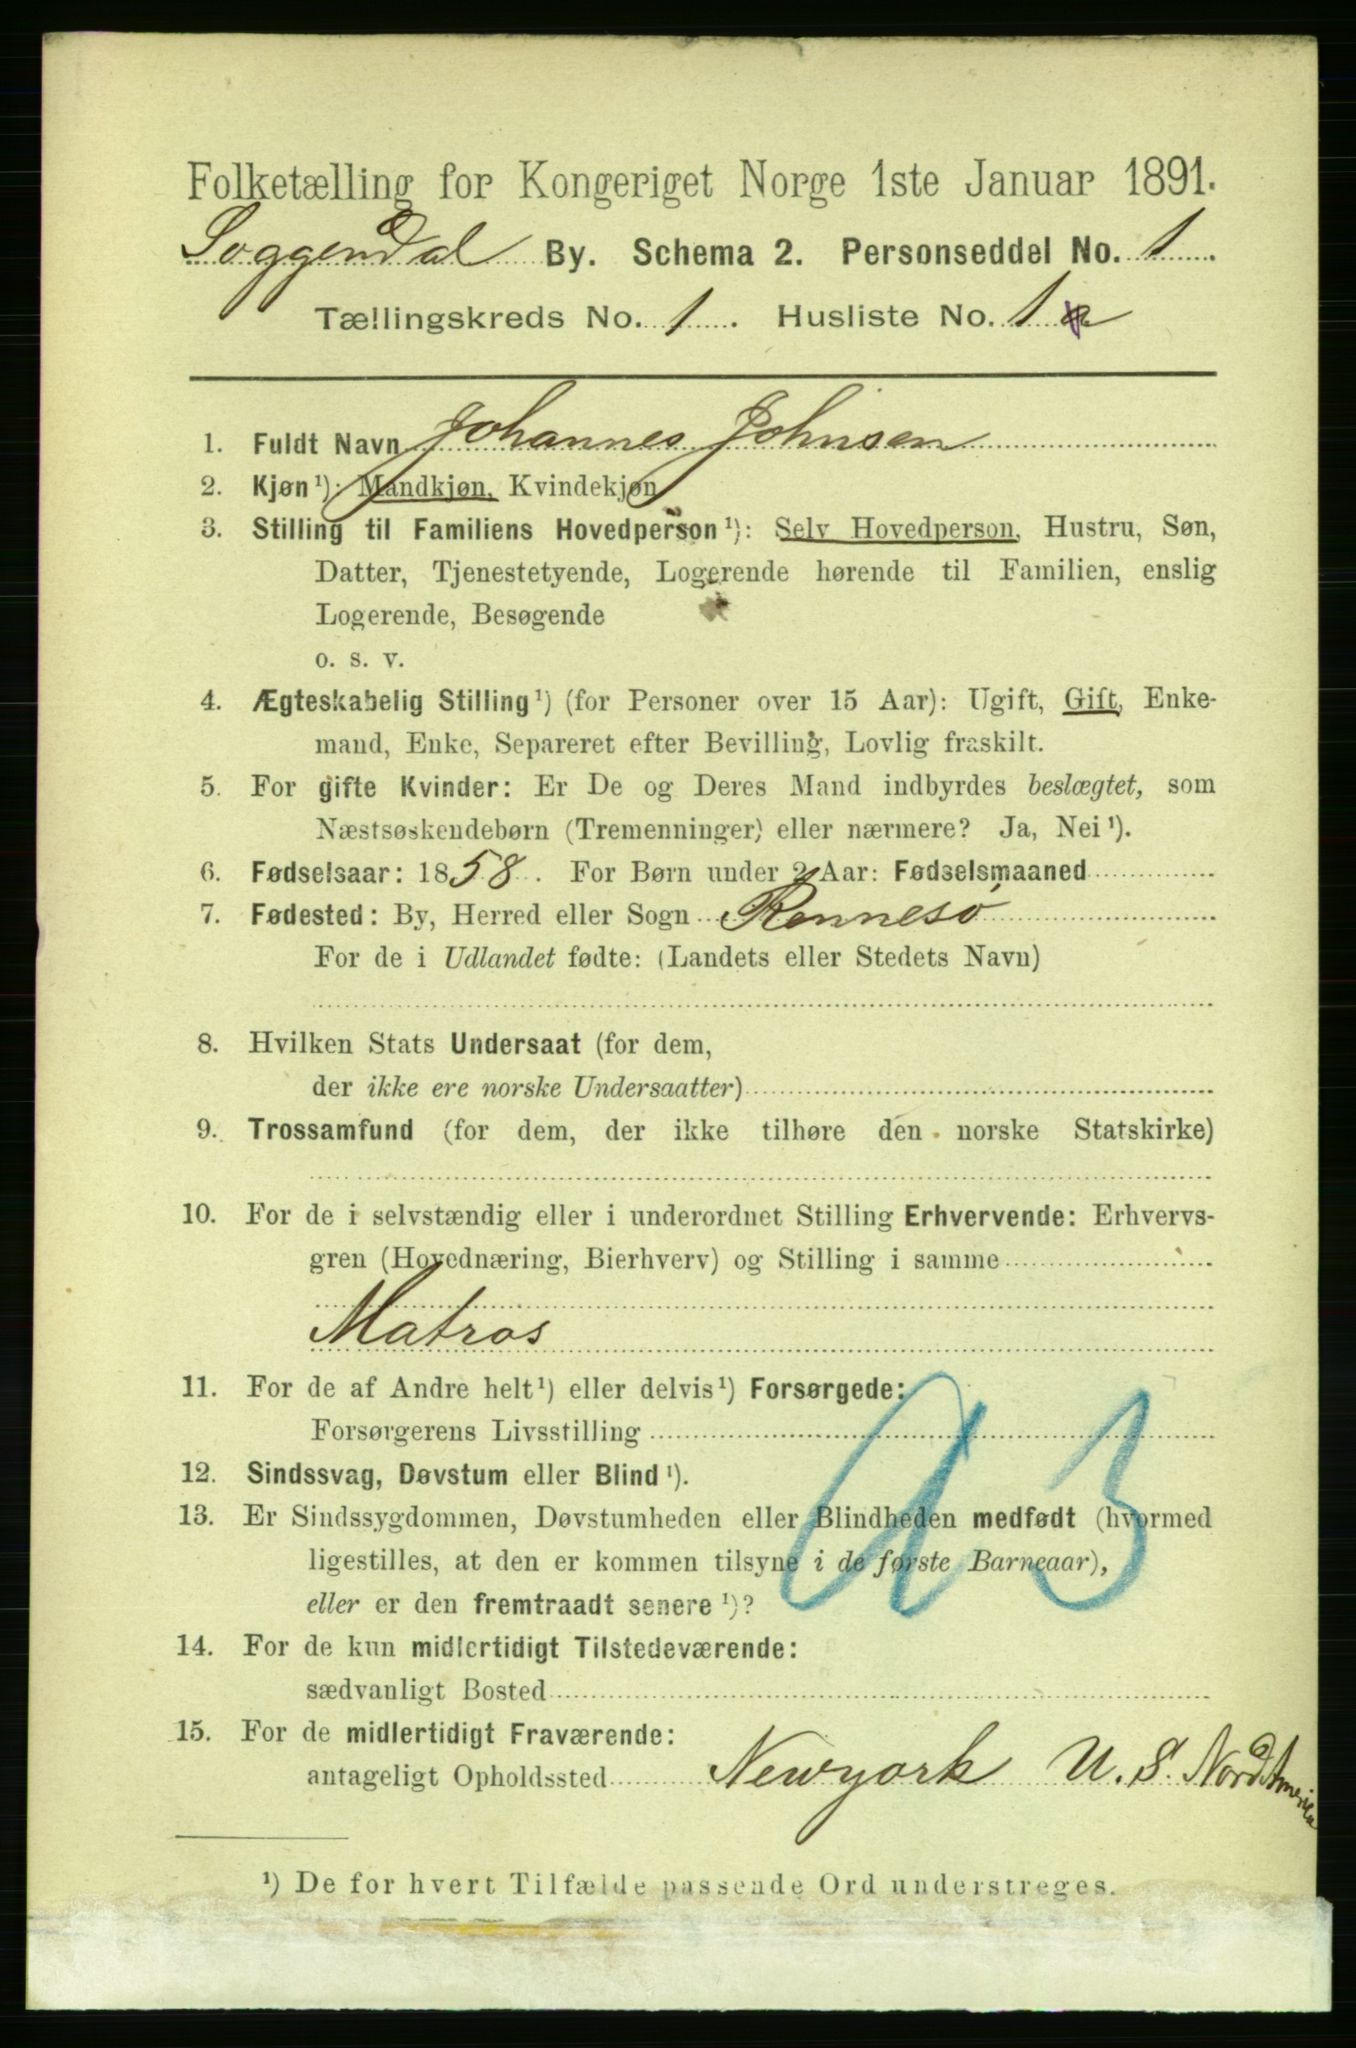 Folketælling for Kongeriget Norge 1ste Januar 1891.
Soggendal By. Schema 2. Personseddel No. 1.
Tællingskreds No. 1. Husliste No. 1 a
1. Fuldt Navn Johannes Johnsen
2. Kjøn¹): Mandkjøn, Kvindekjøn
3. Stilling til Familiens Hovedperson¹): Selv Hovedperson, Hustru, Søn,
Datter, Tjenestetyende, Logerende hørende til Familien, enslig
Logerende, Besøgende
o. s. v.
4. Ægteskabelig Stilling¹) (for Personer over 15 Aar): Ugift, Gift, Enke-
mand, Enke, Separeret efter Bevilling, Lovlig fraskilt.
5. For gifte Kvinder: Er De og Deres Mand indbyrdes beslægtet, som
Næstsøskendebørn (Tremenninger) eller nærmere? Ja, Nei¹).
6. Fødselsaar: 1858. For Børn under 2 Aar: Fødselsmaaned
7. Fødested: By, Herred eller Sogn Rennesö
For de i Udlandet fødte: (Landets eller Stedets Navn)
8. Hvilken Stats Undersaat (for dem,
der ikke ere norske Undersaatter)
9. Trossamfund (for dem, der ikke tilhøre den norske Statskirke)
10. For de i selvstændig eller i underordnet Stilling Erhvervende: Erhvervs-
gren (Hovednæring, Bierhverv) og Stilling i samme
Matros
11. For de af Andre helt¹) eller delvis¹) Forsørgede:
Forsørgerens Livsstilling
12. Sindssvag, Døvstum eller Blind¹).
13. Er Sindssygdommen, Døvstumheden eller Blindheden medfødt (hvormed
ligestilles, at den er kommen tilsyne i de første Barneaar),
eller er den fremtraadt senere¹)?
14. For de kun midlertidigt Tilstedeværende:
sædvanligt Bosted
15. For de midlertidigt Fraværende:
antageligt Opholdssted Newyork U. S. Nord Amerika
¹) De for hvert Tilfælde passende Ord understreges.